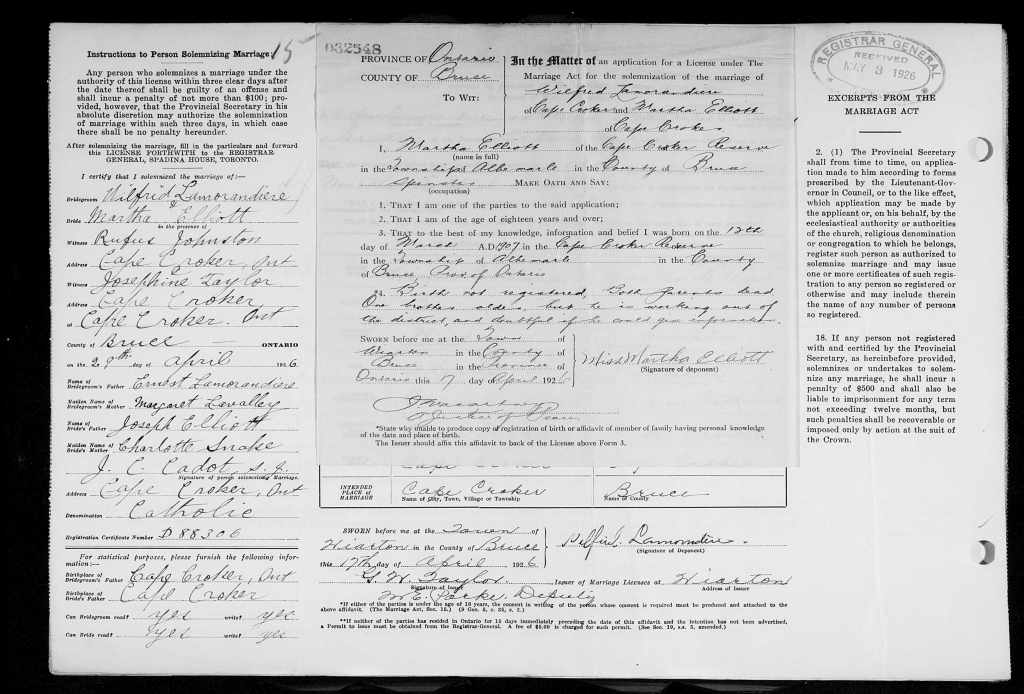 Instructions to Person Solemnizing Marriage:
15
Any person who solemnizes a marriage under the
authority of this license within three clear days after
the date thereof shall be guilty of an offense and
shall incur a penalty of not more than $100; pro-
vided, however, that the Provincial Secretary in his
absolute discretion may authorize the solemnization
of marriage within such three days, in which case
there shall be no penalty hereunder.
After solemnizing the marriage, fill in the particulars and forward
this LICENSE FORTHWITH to the REGISTRAR-
GENERAL, SPADINA HOUSE, TORONTO.
I certify that I solemnized the marriage of:—
Bridegroom Wilfrid Lamorandiere
&
Bride Martha Elliott
in the presence of
Witness Rufus Johnston
Address Cape Croker, Ont
Witness Josephine Taylor
Address Cape Croker
at Cape Croker. Ont
County of Bruce ONTARIO
on the 29th day of April 1926
Name of Bridegroom's Father Ernest Lamorandiere
Maiden Name of Bridegroom's Mother Margaret Lavalley
Name of Bride's Father Joseph Elliott
Maiden Name of Bride's Mother Charlotte Snake
J. C. Cadot, s.j.
Signature of person solemnizing Marriage.
Address Cape Croker, Ont
Denomination Catholic
Registration Certificate Number D 88306
For statistical purposes, please furnish the following infor-
mation:—
Birthplace of Bridegroom's Father Cape Croker, Ont
Birthplace of Bride's Father Cape Croker
Can Bridegroom read? yes write? yes
Can Bride read? yes write? yes
032548
PROVINCE OF Ontario
COUNTY OF Bruce
To Wit:
In the Matter of an application for a License under The
Marriage Act for the solemnization of the marriage of
Wilfred Lamorandiere
of Cape Croker and Martha Elliott
of Cape Croker
I, Martha Elliott of the Cape Croker Reserve
(name in full)
in the Township of Albemarle in the County of Bruce
Spinster MAKE OATH AND SAY:
(occupation)
1. THAT I am one of the parties to the said application;
2. THAT I am of the age of eighteen years and over;
3. THAT to the best of my knowledge, information and belief I was born on the 12th
day of March A.D. 1907 in the Cape Croker Reserve
in the Township of Albemarle in the County
of Bruce, Prov. of Ontario
Birth not registered, Both parents dead
One brother older, but he is working out of
the district, and doubtful if he could give information.
SWORN before me at the Town of
Wiarton in the County of
Bruce in the Province of
Ontario this 17 day of April 1926
Miss Martha Elliott
(Signature of deponent)
*State why unable to produce copy of registration of birth or affidavit of member of family having personal knowledge
of the date and place of birth.
The Issuer should affix this affidavit to back of the License above Form 3.
INTENDED
PLACE of
MARRIAGE
Cape Croker
Name of City, Town, Village or Township
Bruce
Name of County
SWORN before me at the Town of
Wiarton in the County of Bruce
this 17th day of April 1926
Wilfrid. Lamorandiere.
(Signature of Deponent)
G. W. Taylor Issuer of Marriage Licenses at Wiarton
Signature of Issuer
Address of Issuer
Deputy
*If either of the parties is under the age of 18 years, the consent in writing of the person whose consent is required must be produced and attached to the
above affidavit. (The Marriage Act, Sec. 15.) (9 Geo. 5, c. 35, s. 2.)
**If neither of the parties has resided in Ontario for 15 days immediately preceding the date of this affidavit and the intention has not been advertised,
a Permit to issue must be obtained from the Registrar-General. A fee of $5.00 is charged for such permit. (See Sec. 19, s.s. 3, amended.)
REGISTRAR GENERAL
RECEIVED
MAY 3 1926
EXCERPTS FROM THE
MARRIAGE ACT
2. (1) The Provincial Secretary
shall from time to time, on applica-
tion made to him according to forms
prescribed by the Lieutenant-Gov-
ernor in Council, or to the like effect,
which application may be made by
the applicant or, on his behalf, by the
ecclesiastical authority or authorities
of the church, religious denomination
or congregation to which he belongs,
register such person as authorized to
solemnize marriage and may issue
one or more certificates of such regis-
tration to any person so registered or
otherwise and may include therein
the name of any number of persons
so registered.
18. If any person not registered
with and certified by the Provincial
Secretary, as hereinbefore provided,
solemnizes or undertakes to solem-
nize any marriage, he shall incur a
penalty of $500 and shall also be
liable to imprisonment for any term
not exceeding twelve months, but
such penalties shall be recoverable or
imposed only by action at the suit of
the Crown.